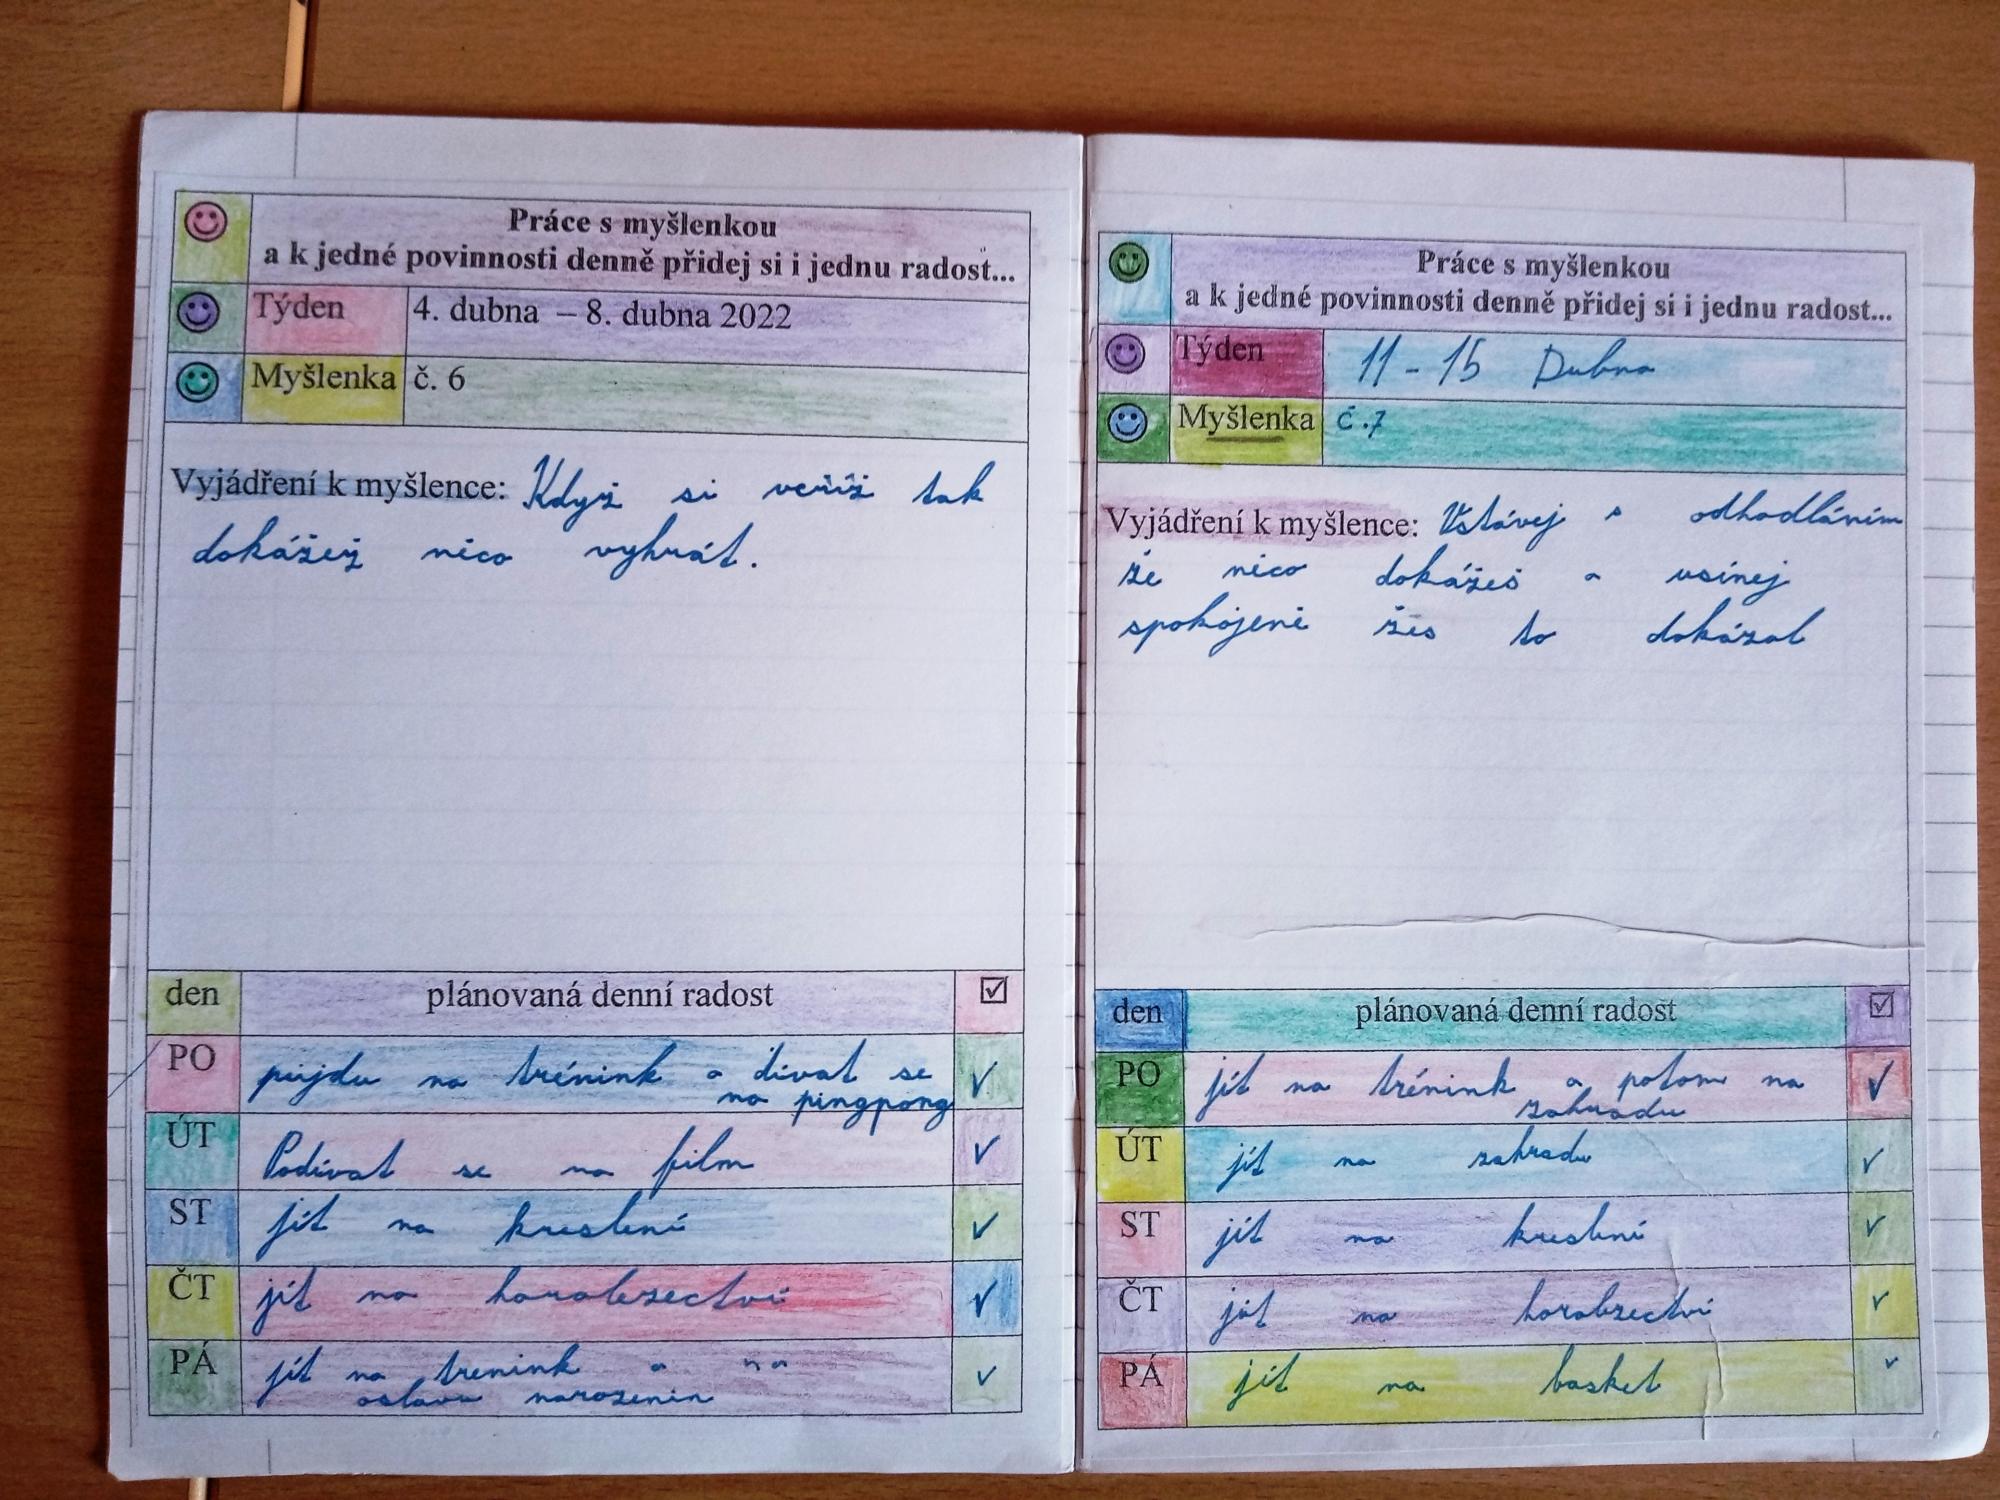 Práce s myšlenkou
a k jedné povinnosti denně přidej si i jednu radost...
Týden 4. dubna – 8. dubna 2022
Myšlenka č. 6
Vyjádření k myšlence: Když si veříž tak
dokážež něco vyhrát.
den plánovaná denní radost ☑
PO pujdu na trénink a dívat se ✓
na pingpong
ÚT Podívat se na film ✓
ST jít na kreslení ✓
ČT jít na horolezectví ✓
PÁ jít na trenink a na ✓
oslavu narozenin
Práce s myšlenkou
a k jedné povinnosti denně přidej si i jednu radost...
Týden 11 - 15 Dubna
Myšlenka č.7
Vyjádření k myšlence: Vstávej s odhodláním
že něco dokážeš a usínej
spokojeně žes to dokázal
den plánovaná denní radost ☑
PO jít na trénink a potom na ✓
zahradu
ÚT jít na zahradu ✓
ST jít na kreslení ✓
ČT jít na horolezectví ✓
PÁ jít na basket ✓